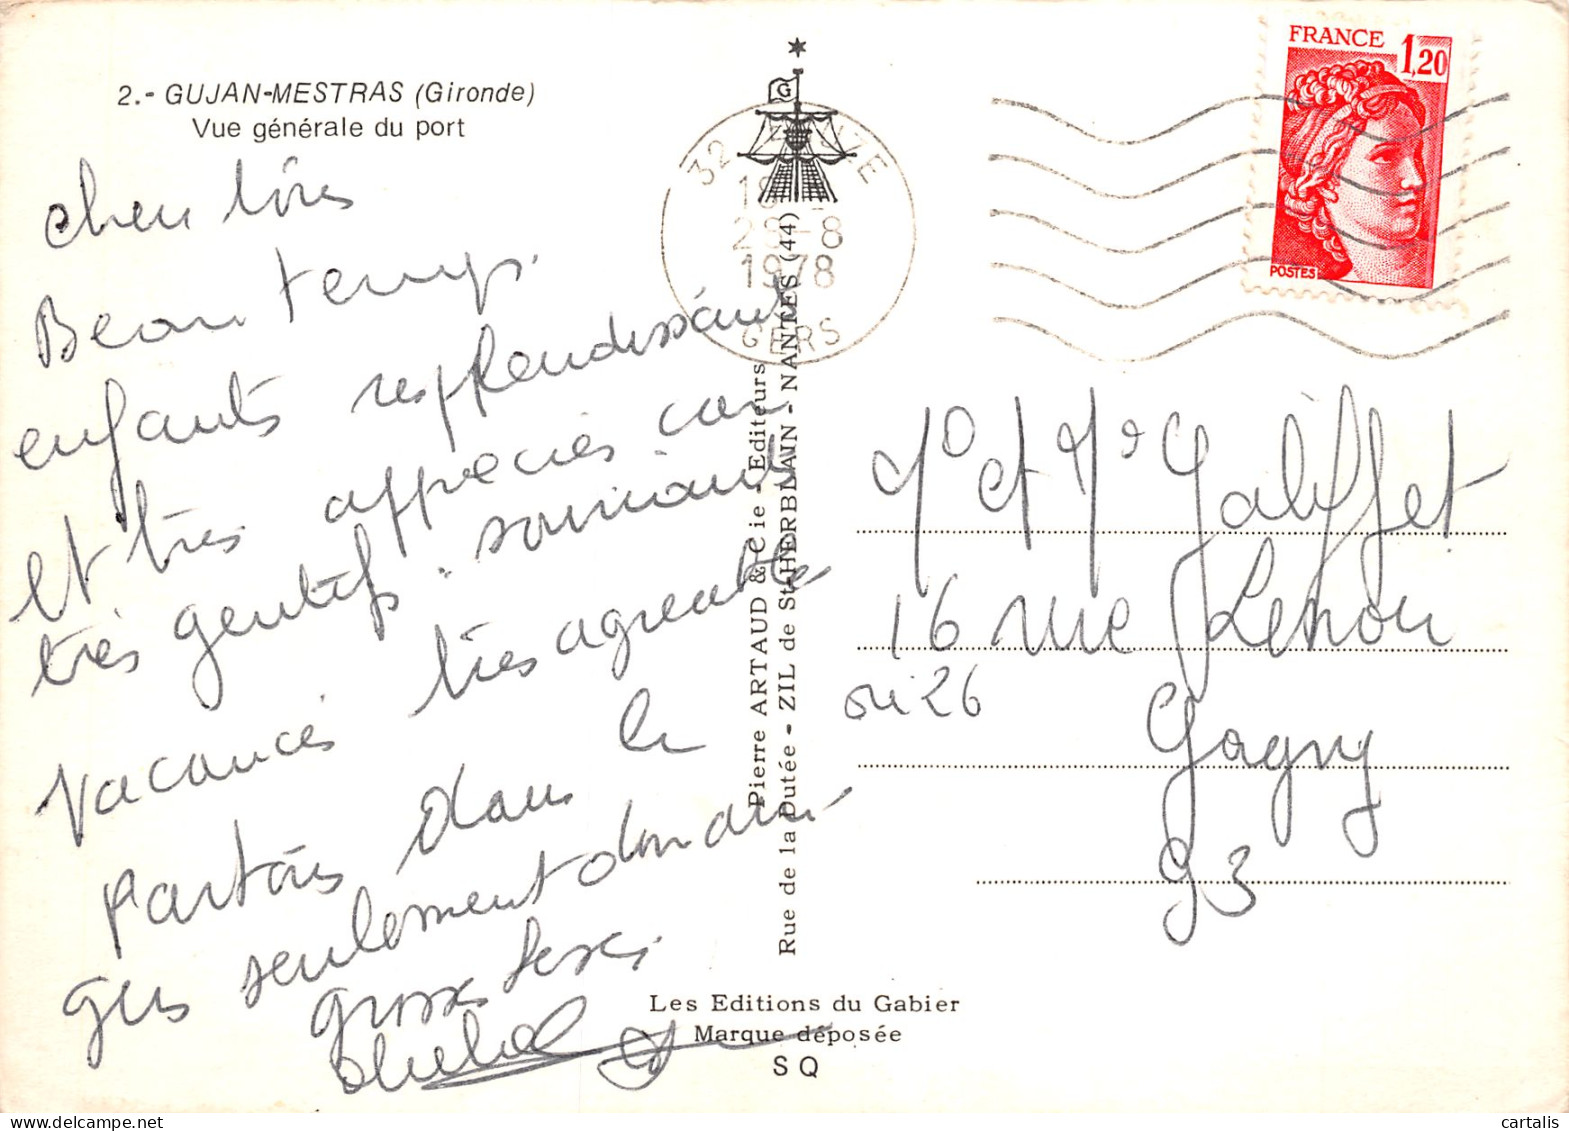 2.- GUJAN-MESTRAS (Gironde)
Vue générale du port
chers tous
Beau temps.
enfants resplendissants
et très appréciés car
très gentils. souriants
vacances très agreable
partons dans le
gers seulement
grosses bises
G
32
1978
GERS
FRANCE 1,20
POSTES
Pierre ARTAUD & Cie - Editeurs
Rue de la Dutée - ZIL de St-HERBLAIN - NANTES (44)
Les Editions du Gabier
Marque déposée
SQ
et Mr Galiffet
16 rue Lenoir
ou 26
Gagny
93
cartalis